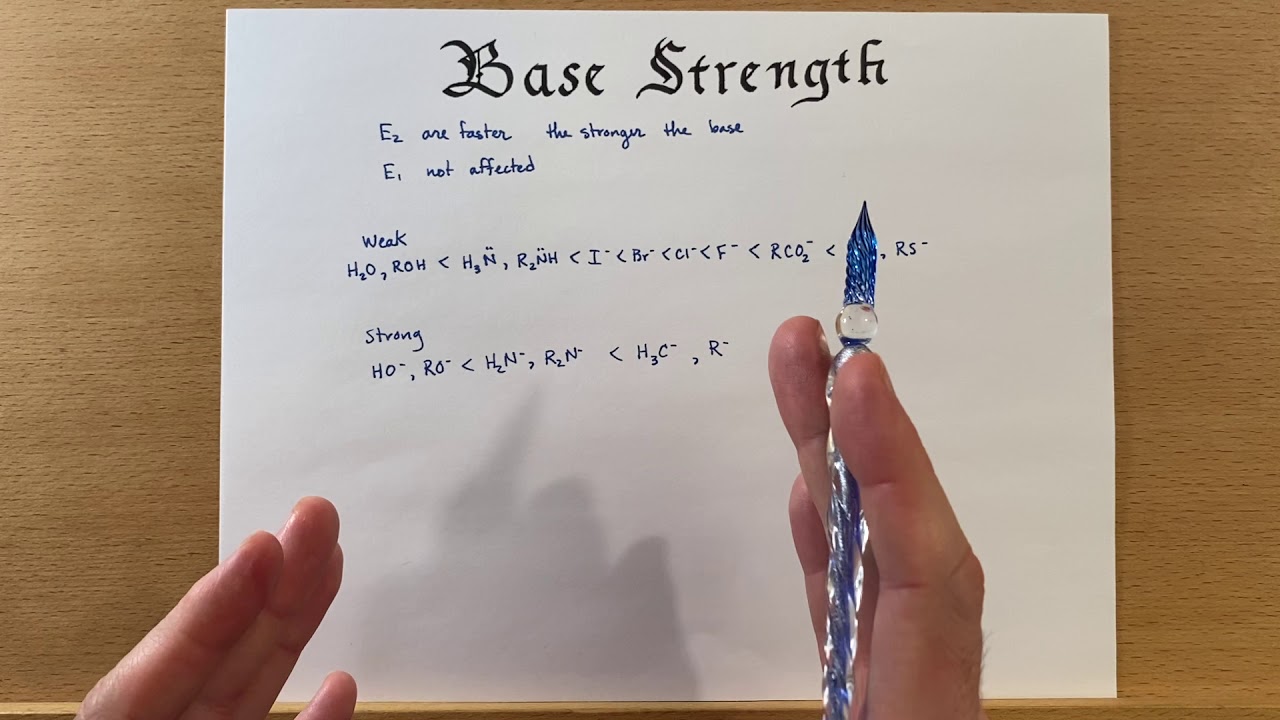 Base Strength
E₂ are faster the stronger the base
E₁ not affected
Weak
H₂O, ROH < H₃N̈, R₂N̈H < I⁻ < Br⁻ < Cl⁻ < F⁻ < RCO₂⁻ < , RS⁻
Strong
HO⁻, RO⁻ < H₂N⁻, R₂N⁻ < H₃C⁻ , R⁻